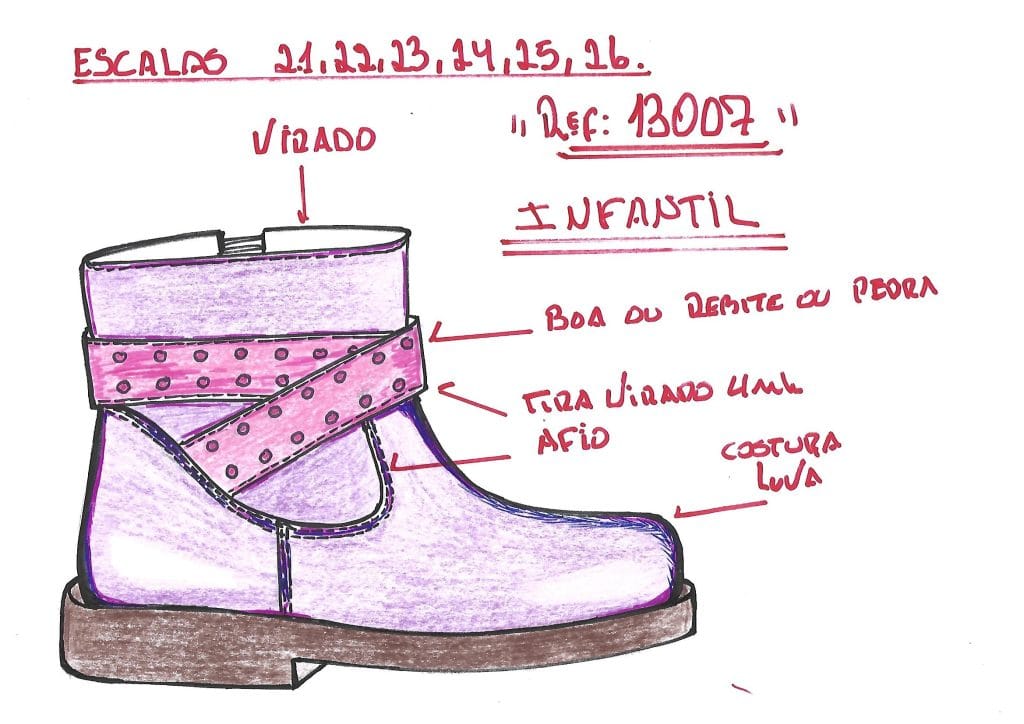 ESCALAS 21, 22, 23, 24, 25, 26.
"Ref: 13007"
VIRADO
INFANTIL
BOA OU REBITE OU PEDRA
TIRA VIRADO 4ML
AFIO
COSTURA
LUVA